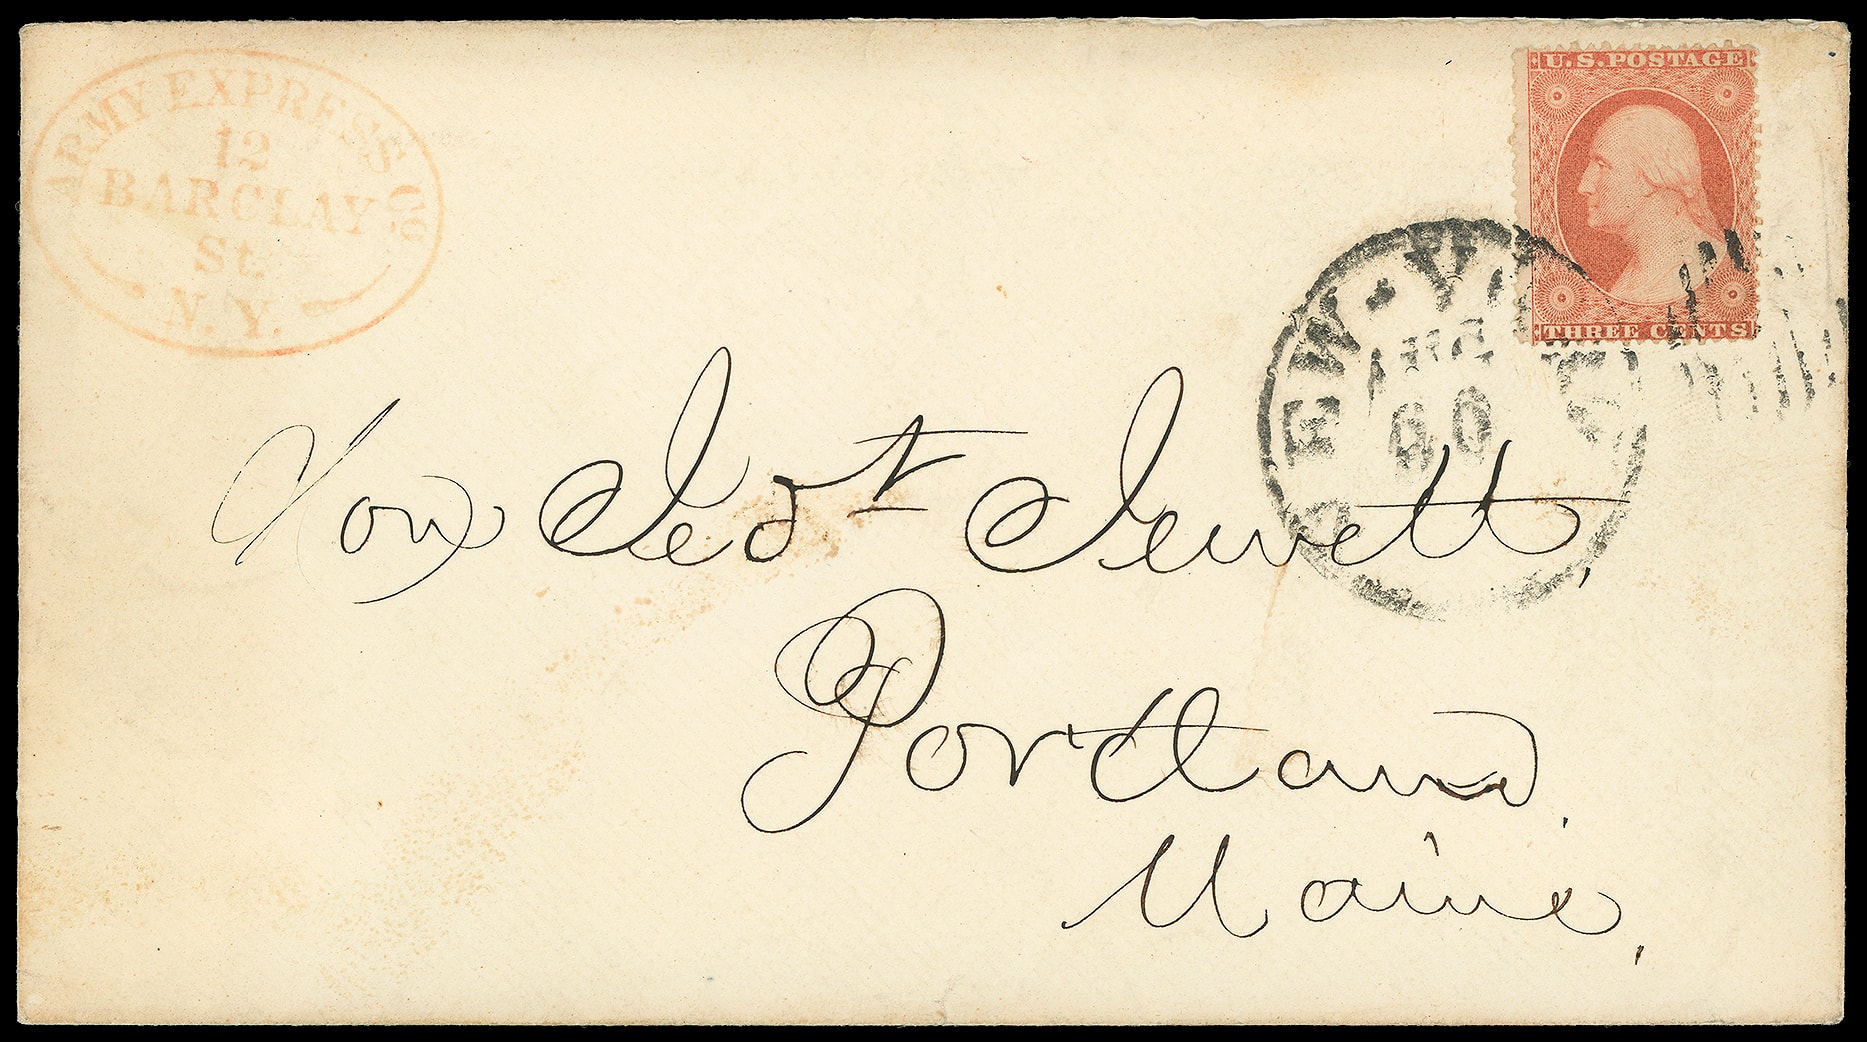 ARMY EXPRESS Co.
12
BARCLAY
St.
N. Y.
U.S. POSTAGE
THREE CENTS
Hon Jedh Jewett,
Portland,
Maine,